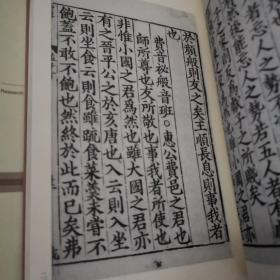 Research
於顏般則友之矣王順長息則事我者
也
費音秘般音班。惠公費邑之君也
師所尊也友所敬也事我者所使也
非惟小國之君為然也雖大國之君亦
有之晉平公之於亥唐也入云則入坐
云則坐食云則食雖疏食菜羹未嘗不
飽蓋不敢不飽也然終於此而已矣弗